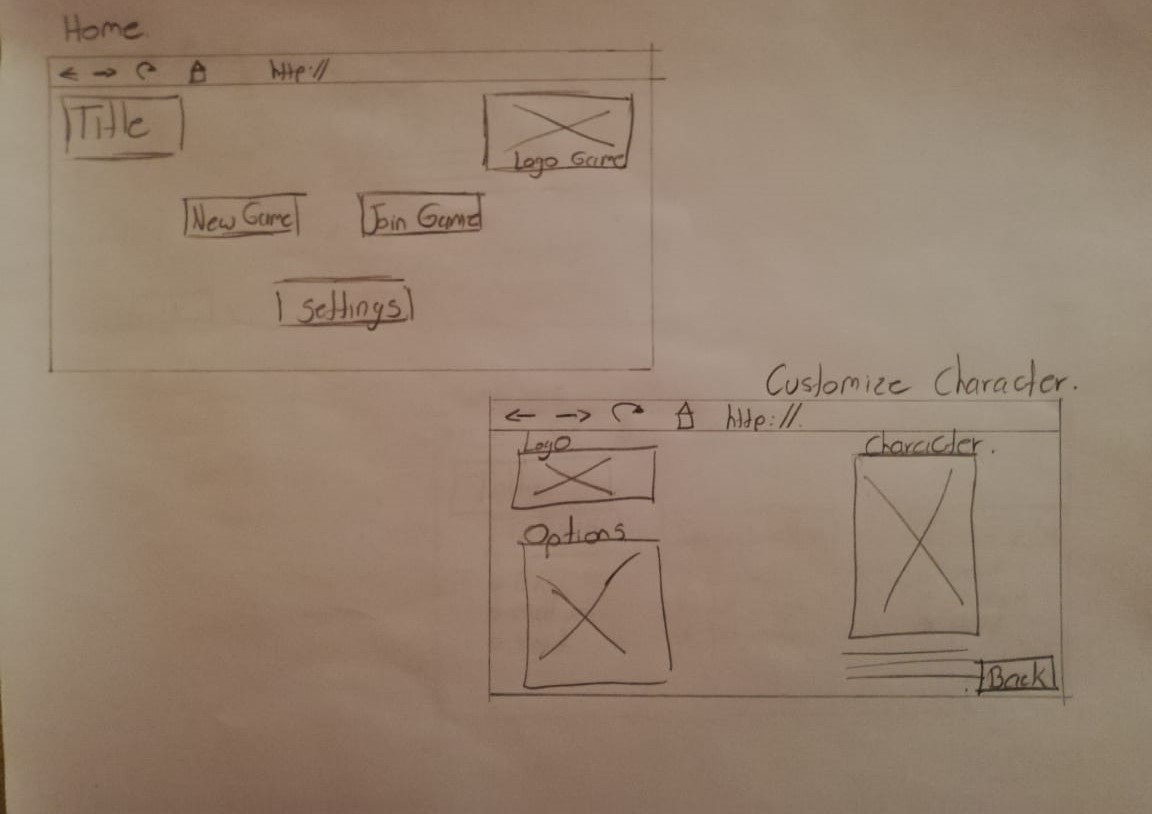 Home.
http://
Title
Logo Game
New Game
Join Game
Settings
Customize Character.
http://.
Logo
Character.
Options
Back